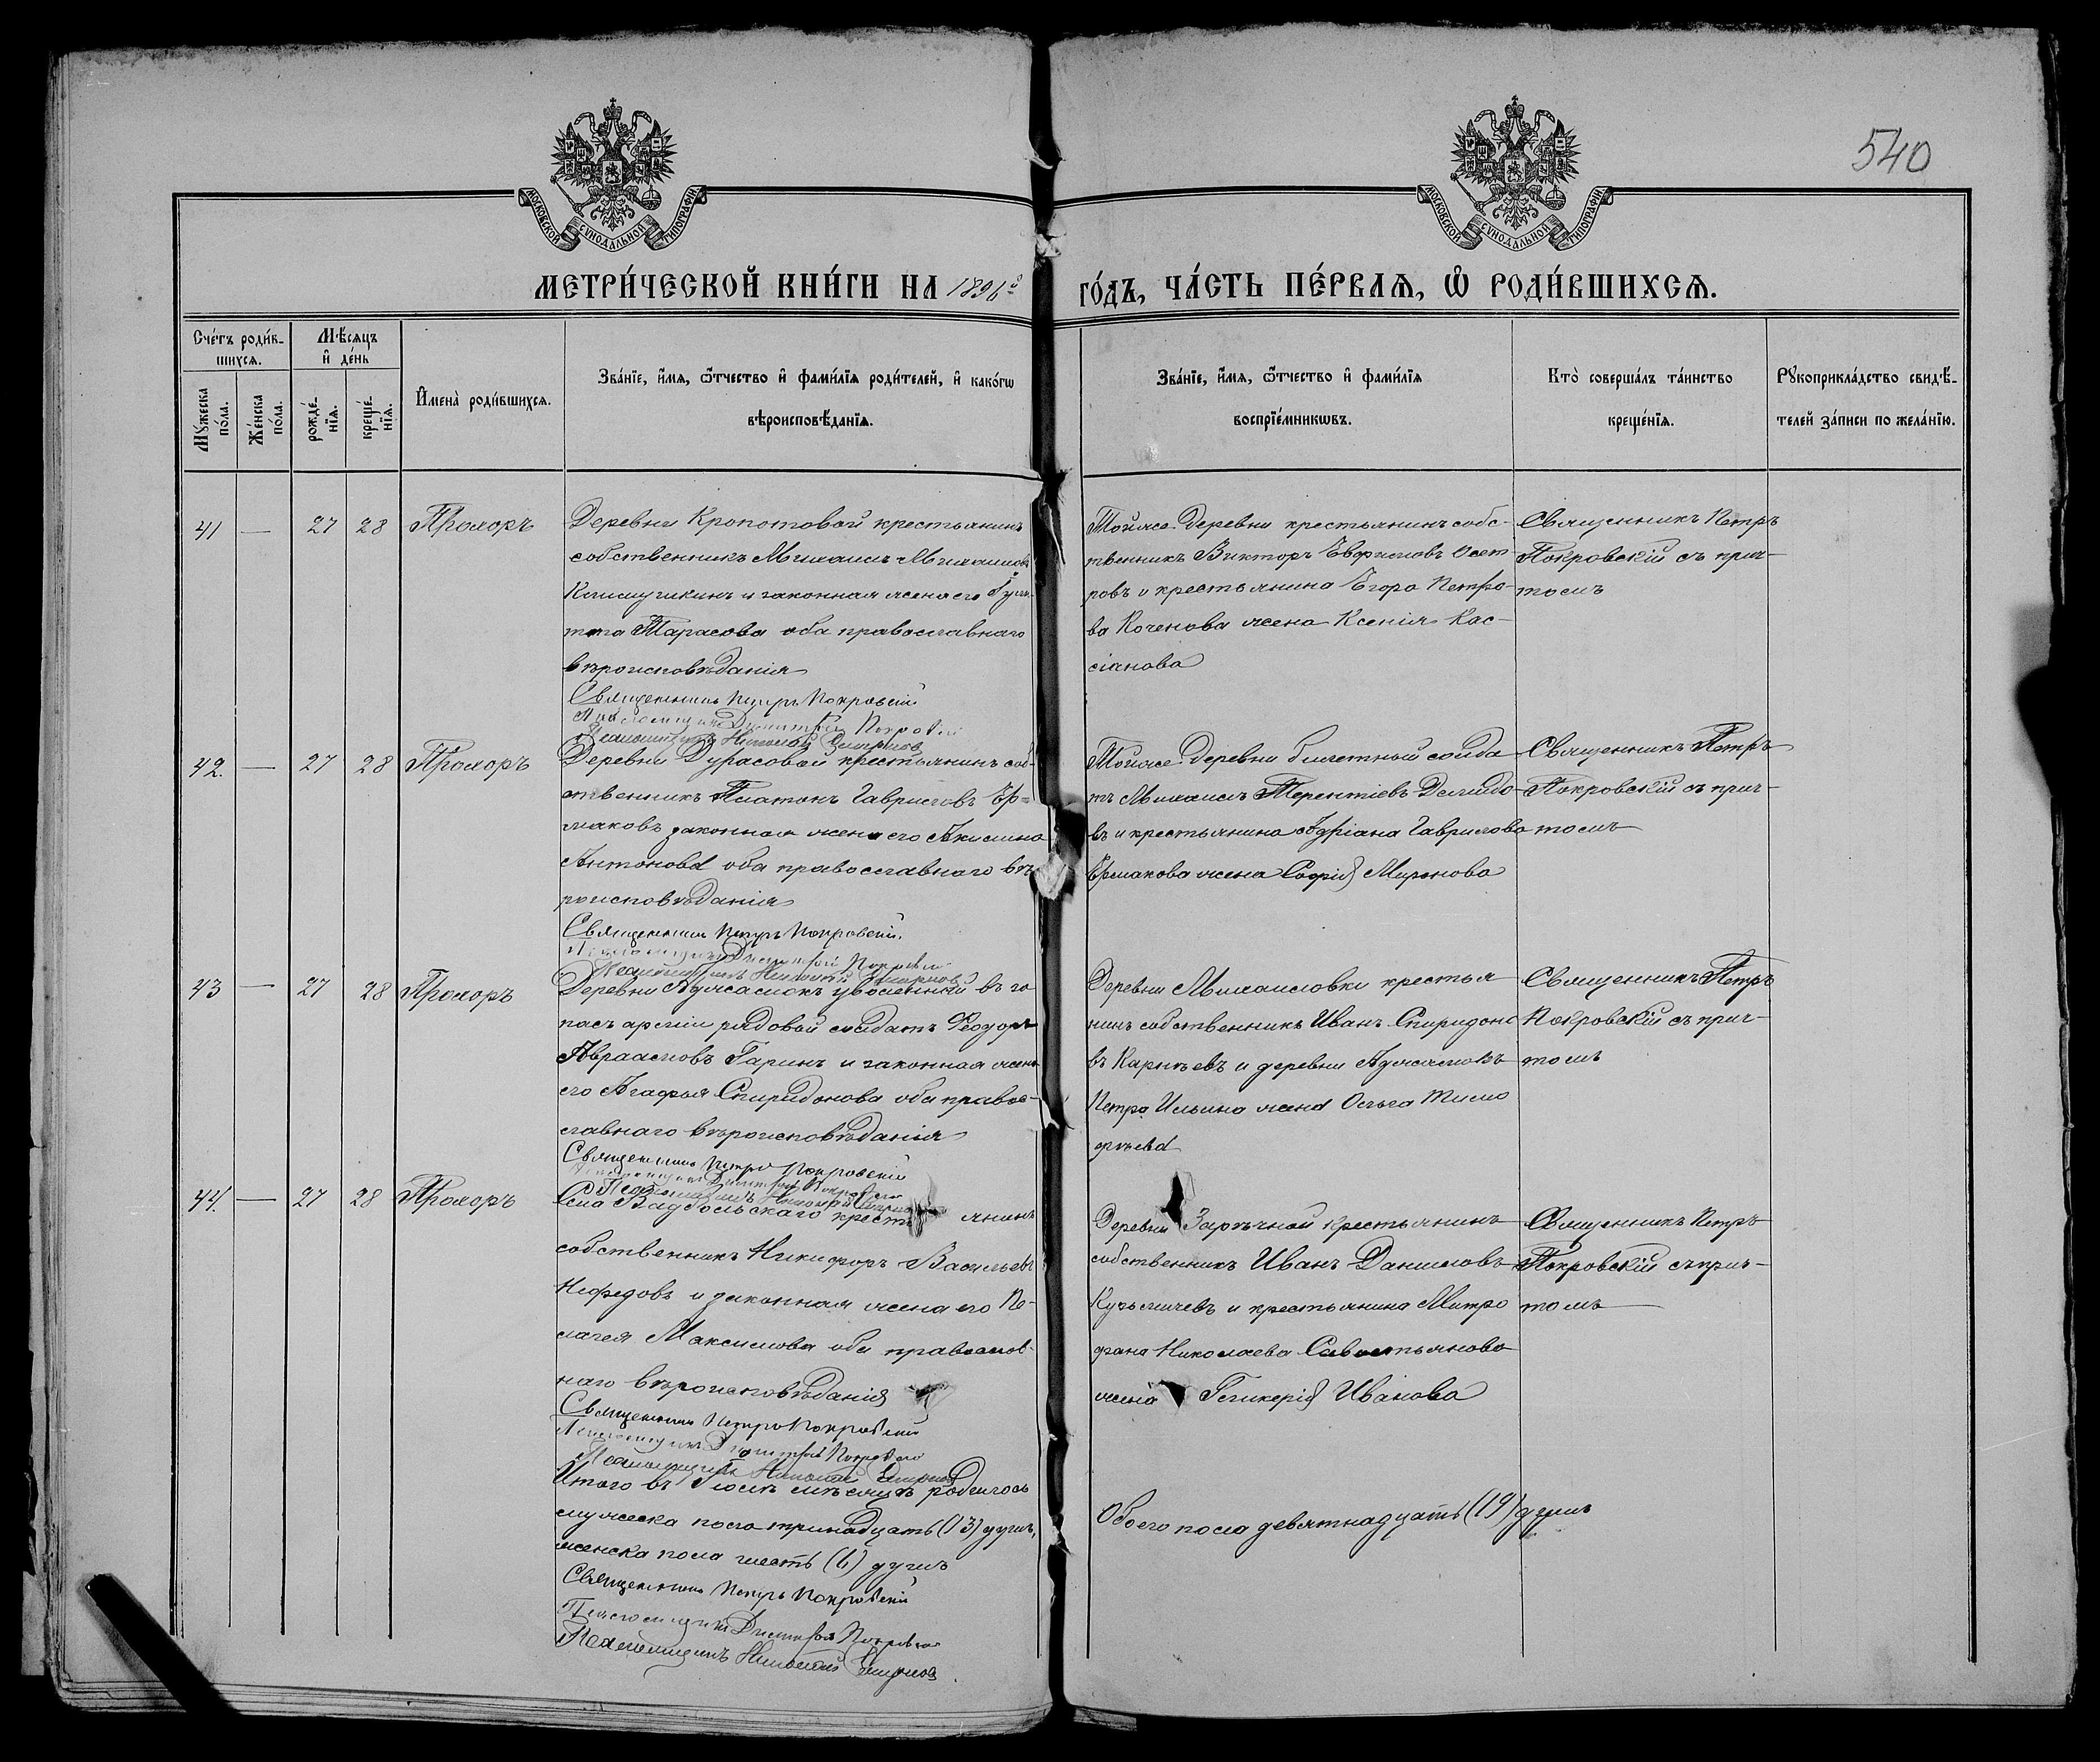 540
МОСКОВСКОЙ СѴНОДАЛЬНОЙ ТИПОГРАФІИ
МОСКОВСКОЙ СѴНОДАЛЬНОЙ ТИПОГРАФІИ
МЕТРИ́ЧЕСКОЙ КНИ́ГИ НА 1896й ГО́ДЪ, ЧА́СТЬ ПЕ́РВАѦ, Ѡ РОДИ́ВШИХСѦ.
Сче́тъ роди́в-
шихсѧ.
Мѣ́сѧцъ
и҆ де́нь
Мꙋ́жеска
по́ла.
Же́нска
по́ла.
рожде́-
нїѧ.
креще́-
нїѧ.
И҆мена̀ роди́вшихсѧ.
Зва́нїе, и҆́мѧ, ѻ҆́тчество и҆ фами́лїѧ роди́телей, и҆ како́гѡ
вѣроисповѣ́данїѧ.
Зва́нїе, и҆́мѧ, ѻ҆́тчество и҆ фами́лїѧ
воспрїе́мникѡвъ.
Кто̀ соверша́лъ та́инство
креще́нїѧ.
Рꙋкоприкла́дство свидѣ́-
телей за́писи по жела́нїю.
41 — 27 28 Прохоръ
Деревни Кропотовой крестьянинъ
собственникъ Михаилъ Михаиловъ
и законная жена его
Тарасова оба православнаго
вѣроисповѣданія
Священникъ Петръ Покровскій
Псаломщикъ Димитрій Покровскій
Псаломщикъ Николай Смирновъ
Тойже деревни крестьянинъ собс-
твенникъ Викторъ Ефимовъ Осет-
ровъ и крестьянина Егора Петро-
ва Коченова жена Ксенія Кас-
сіанова
Священникъ Петръ
Покровскій съ прич-
томъ
42. — 27 28 Прохоръ
Деревни Дурасовой крестьянинъ соб-
ственникъ Платонъ Гавриловъ Ер-
маковъ законная жена его Акилина
Антонова оба православнаго вѣ-
роисповѣданія
Священникъ Петръ Покровскій.
Псаломщикъ Димитрій Покровскій
Псаломщикъ Николай Смирновъ
Тойже деревни билетный солда-
тъ Михаилъ Терентіевъ Демидо-
въ и крестьянина Адріана Гаврилова
Ермакова жена Софія Миронова
Священникъ Петръ
Покровскій съ прич-
томъ
43 — 27 28 Прохоръ
Деревни Аджамокъ уволенный въ за
пасъ арміи рядовой солдатъ Феодоръ
Авраамовъ Гаринъ и законная жена
его Агафья Спиридонова оба правос-
лавнаго вѣроисповѣданія
Священникъ Петръ Покровскій
Псаломщикъ Димитрій Покровскій
Псаломщикъ Николай Смирновъ
Деревни Михаиловки крестья
нинъ собственникъ Иванъ Спиридоно
въ и деревни Аджамокъ
Петра Ильина жена Ольга Тимо
фѣева
Священникъ Петръ
Покровскій съ прич-
томъ
44. — 27 28 Прохоръ
Села крестьянинъ
собственникъ Никифоръ Васильевъ
Нефедовъ и законная жена его Пе-
лагея Максимова оба православ-
наго вѣроисповѣданія
Священникъ Петръ Покровскій
Псаломщикъ Димитрій Покровскій
Псаломщикъ Николай Смирновъ
Деревни Зарѣчной крестьянинъ
собственникъ Иванъ Даниловъ
Кузьмичевъ и крестьянина Митро
фана Николаева Савостьянова
жена Гликерія Иванова
Священникъ Петръ
Покровскій съ прич-
томъ
Итого въ Іюлѣ мѣсяцѣ родилось
мужеска пола тринадцать (13) душъ,
женска пола шесть (6) душъ
Священникъ Петръ Покровскій
Псаломщикъ Димитрій Покровскій
Псаломщикъ Николай Смирновъ.
Обоего пола девятнадцать (19) душъ